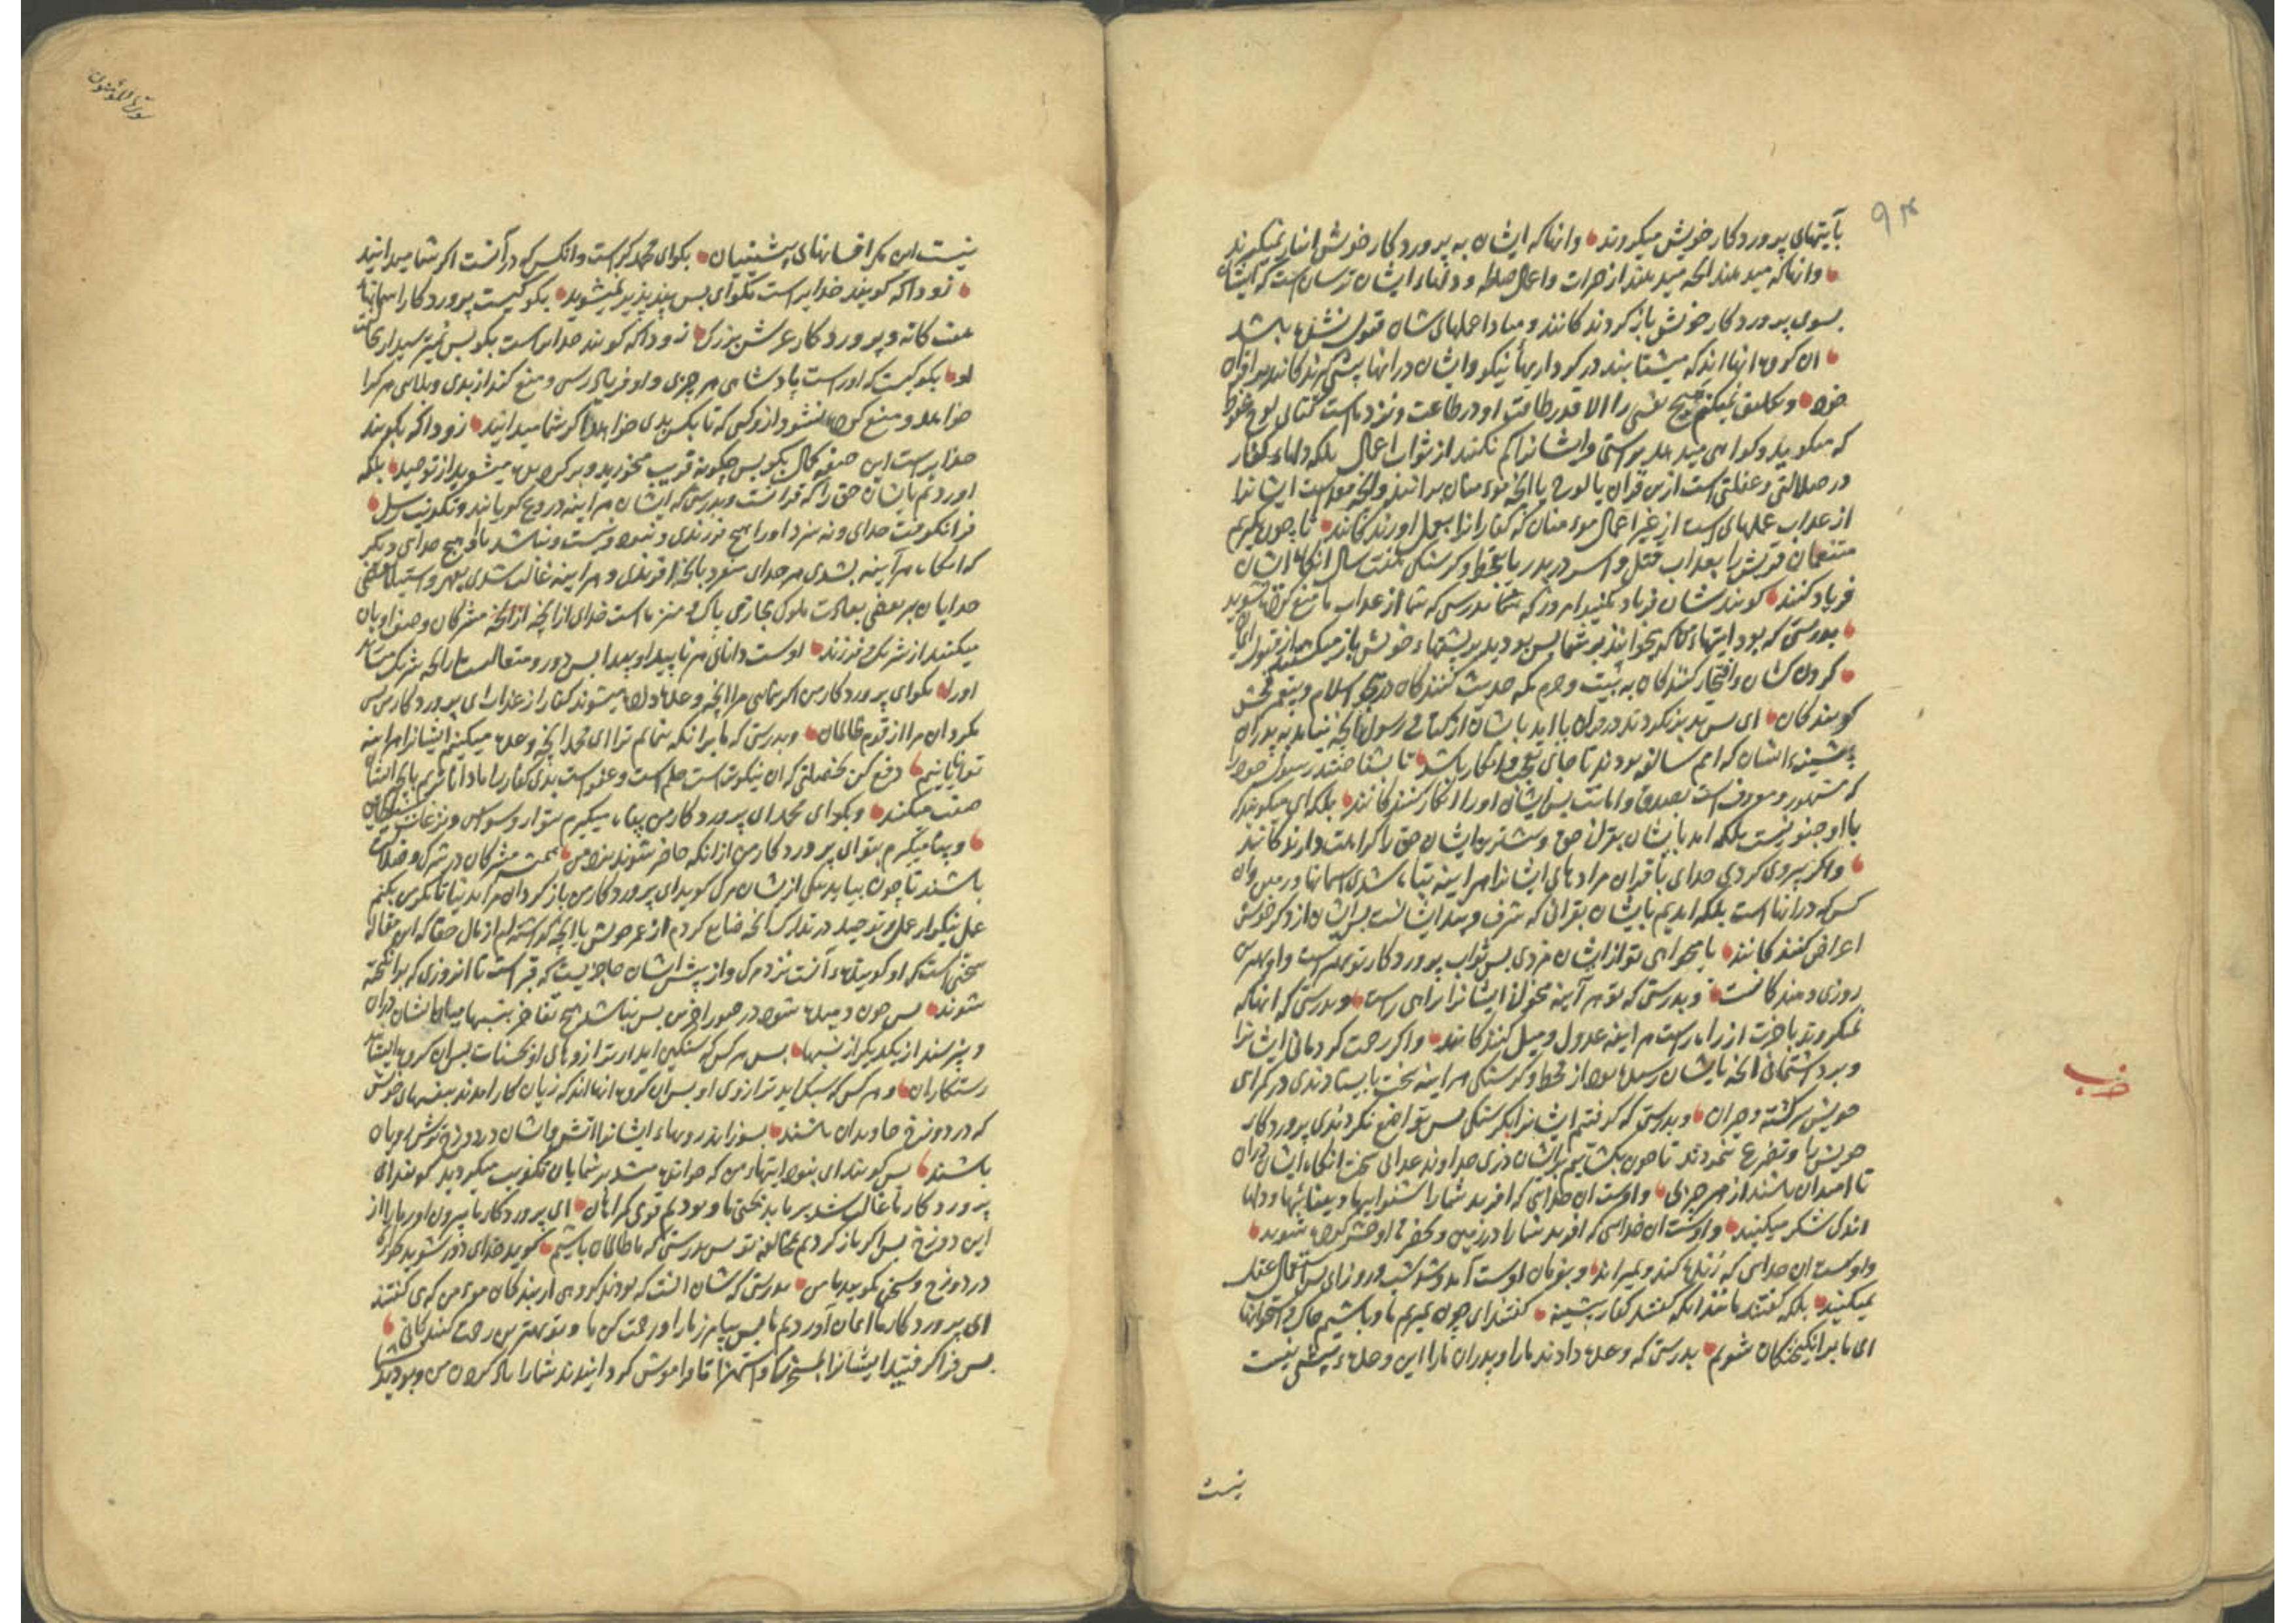 بآیتهای پروردکار خویش میکروند وانها که ایشان به پروردکار خویش انباز نمیکیرند
وانها که میدهند انچه میدهند از خیرات واعمال صالحه و دلهاء ایشان ترسان است که ایشان
بسوی پروردکار خویش باز کردند کانند و مبادا عملهای شان قبول نشده باشد
ان کروه انها اند که میشتابند در کرداریهاء نیکو وایشان درانها پیشی کیرند کانند بر اقران
خود وتکلیف نمیکنم هیچ نفس را الا قدر طاقت او در طاعت ونزد ماست کتابی لوح محفوظ
که میکوید وکواهی میدهد براستی وایشانرا کم نکنند از ثواب اعمال بلکه دلهاء کفار
در ضلالتی وغفلتی است ازین قران یا لوح یا انچه مؤمنان برانند وانچه هست ایشانرا
از عذاب عملهای است از غیر اعمال مؤمنان که کفار انرا بعمل اورندکانند تا چون بکیریم
متنعمان قریش را بعذاب قتل واسر در بدر یا بقحط وکرسنکی هفت سال انکاه ایشان
فریاد کنند کویند شان فریاد مکنید امروز که بدرستی که شما از عذاب ما منع کرده نشوید
بدرستی که بود ایتهاء ما که بخوانند بر شما پس بودید بر پشتهاء خویش باز میکشتید از قبول ایمان
کردن کشان وافتخار کنندکان به بیت وحرم مکه حدیث کنندکان در اسلام وپیغمبر فحش
کویندکان ای پس تدبر نکردند در قران یا امد با شان از کتاب ورسول انچه نیامد به پدران
پیشینهء ایشان که امم سالفه بودند تا جای تعجب وانکار باشد یا نشناختند رسول خود را
که مشهور ومعروف است بصدق وامانت پس ایشان اورا انکار کنندکانند بلکه ای میکویند که
با او جنونیست بلکه امد با یشان بقران حق وبیشترین ایشان حق را کراهت دارندکانند
واکر پیروی کردی خدای یا قران مرادهای ایشانرا هراینه تباه شدی اسمانها و زمین وان
کس که درانها است بلکه امدیم بایشان بقرانی که شرف وپند ایشانست پس ایشان از ذکر خویش
اعراض کنندکانند یا میخواهی تو از ایشان مزدی پس ثواب پروردکار تو بهتر است واو بهترین
روزی دهندکانست وبدرستی که تو هر آینه میخوانی ایشانرا براه راست وبدرستی که انها که
نمیکروند باخرت از راه راست هراینه عدول ومیل کنندکانند واکر رحمت کردمانی ایشانرا
وبرداشتمانی انچه بایشان رسیده بود از قحط وکرسنکی هراینه بایستادندی در کمراهی
خویش سرکشته وحیران وبدرستی که کرفتیم ایشانرا بکرسنکی پس تواضع نکردندی پروردکار
خویش را وتضرع ننمودند تا چون بکشاییم بر ایشان دری خداوند عذابی سخت انکاه ایشان دران
نا امیدان باشند از هر چیزی واوست ان خدایی که افرید شما را شنواییها وبیناییها ودلها
اندکی شکر میکنید واوست ان خدایی که افرید شما را در زمین وبحضرت او حشر کرده شوید
واوست ان خدایی که زنده کند وبمیراند وبفرمان اوست آمد وشد شب وروز ای پس استعمال عقل
نمیکنید بلکه کفتند مانند انکه کفتند کفار پیشینه کفتند ای چون بمیریم ما وباشیم خاک واستخوانها
ای ما برانکیختکان شویم بدرستی که وعده دادند ما را وپدران ما را این وعده پیش نیست
نیست
ضرب
سورة المؤمنون
نیست این مکر افسانهای پیشینیان بکو ای محمد کراست وانکس که در آنست اکر شما میدانید
زودا که کویند خدایراست بکو ای پس پند پذیر نمیشوید بکو کیست پروردکار اسمانها
هفت کانه وپروردکار عرش بزرک زودا که کویند خدایراست بکو پس نمیترسید از
او بکو کیست که اوراست پادشاهی هر چیزی واو فریاد رسی ومنع کند از بدی وبلایی هر کرا
خواهد ومنع کرده نشود از وکسی که تا بکس بدی خواهد اکر شما میدانید زودا که بکویند
خدایراست این صفه کمال بکو پس چکونه فریب میخورید وبر کردانیده میشوید از توحید بلکه
اوردیم بایشان حق را که قرانست وبدرستی که ایشان هراینه دروغ کویانند وتکذیب رسل
فرا نکرفت خدای ونه سزد اورا هیچ فرزندی ونبوده است ونباشد با او هیچ خدای دیکر
که انکاه هرآینه بشدی هر خدای منفرد بانچه افریدی وهراینه غالب شدی بقهر واستیلا بعضی
خدایان بر بعضی بعادت ملوک مجازی پاک ومنزه است خدای از انچه مشرکان وصف او بان
میکنند از شریک وفرزند اوست دانای هر ناپیدا وپیدا پس دور ومتعالیست از انچه شریک میسازند
اورا بکو ای پروردکار من اکر نمایی مرا انچه وعده داده میشوند کفار از عذاب ای پروردکار من پس
مکردان مرا از قوم ظالمان وبدرستی که ما برانکه بنمایم ترا ای محمد انچه وعده میکنیم ایشانرا هراینه
تواناییم دفع کن بخصلتی که ان نیکوتر است حلم است وعفو است بدی کفار را ما داناتریم بانچه ایشان
صفت میکنند وبکو ای محمد ای پروردکار من پناه میکیرم بتو از وسوسه ونزغات شیطان
وپناه میکیرم بتو ای پروردکار من از انکه حاضر شوند نزد من همیشه مشرکان در شرک وضلالت
باشند تا چون بیاید یکی از یشان مرک کوید ای پروردکار من باز کردان مرا بدنیا تا مکر من بکنم
عمل نیکو از عمل وتوحید در تدارک انچه ضایع کردم از عمر خویش یا انچه کذاشته ام از مال حقا که این مقاله
سخنی است که او کویندهء آنست نزد مرک واز پیش ایشان حاجزیست که قبر است تا انروزی که برانکیخته
شوند پس چون دمیده شود در صور اخرین پس نباشد هیچ تفاخر بنسبها میان ایشان دران
ونپرسند از یکدیکر از نسبها پس هر کس که سنکین اید ترازوهای او بحسنات پس ان کروه ایشانند
رستکاران وهر کس که سبک اید ترازوی او پس ان کروه انها اند که زیان کار امدند بنفسهای خویش
که در دوزخ جاویدان باشند بسوزاند رویهاء ایشانرا اتش وایشان در دوزخ ترش رویان
باشند پس کویند ای نبود ایتهاء من که خوانده میشد بر شما بان تکذیب میکردید کویند ای
پروردکار ما غالب شد بر ما بدبختی ما وبودیم قومی کمراهان ای پروردکار ما بیرون اور ما را از
این دوزخ پس اکر باز کردیم بمخالفه تو پس بدرستی که ما ظالمان باشیم کوید خدای دور شوید
در دوزخ وسخن مکویید با من بدرستی که شان انست که بودند کروهی از بندکان مؤمن که می کفتند
ای پروردکار ما ایمان آوردیم ما پس بیامرز ما را ورحمت کن ما وتو بهترین رحمت کنندکانی
پس فرا کرفتید ایشانرا بسخریه واستهزا تا فراموش کردانیدند شما را یاد کردن من وبودید